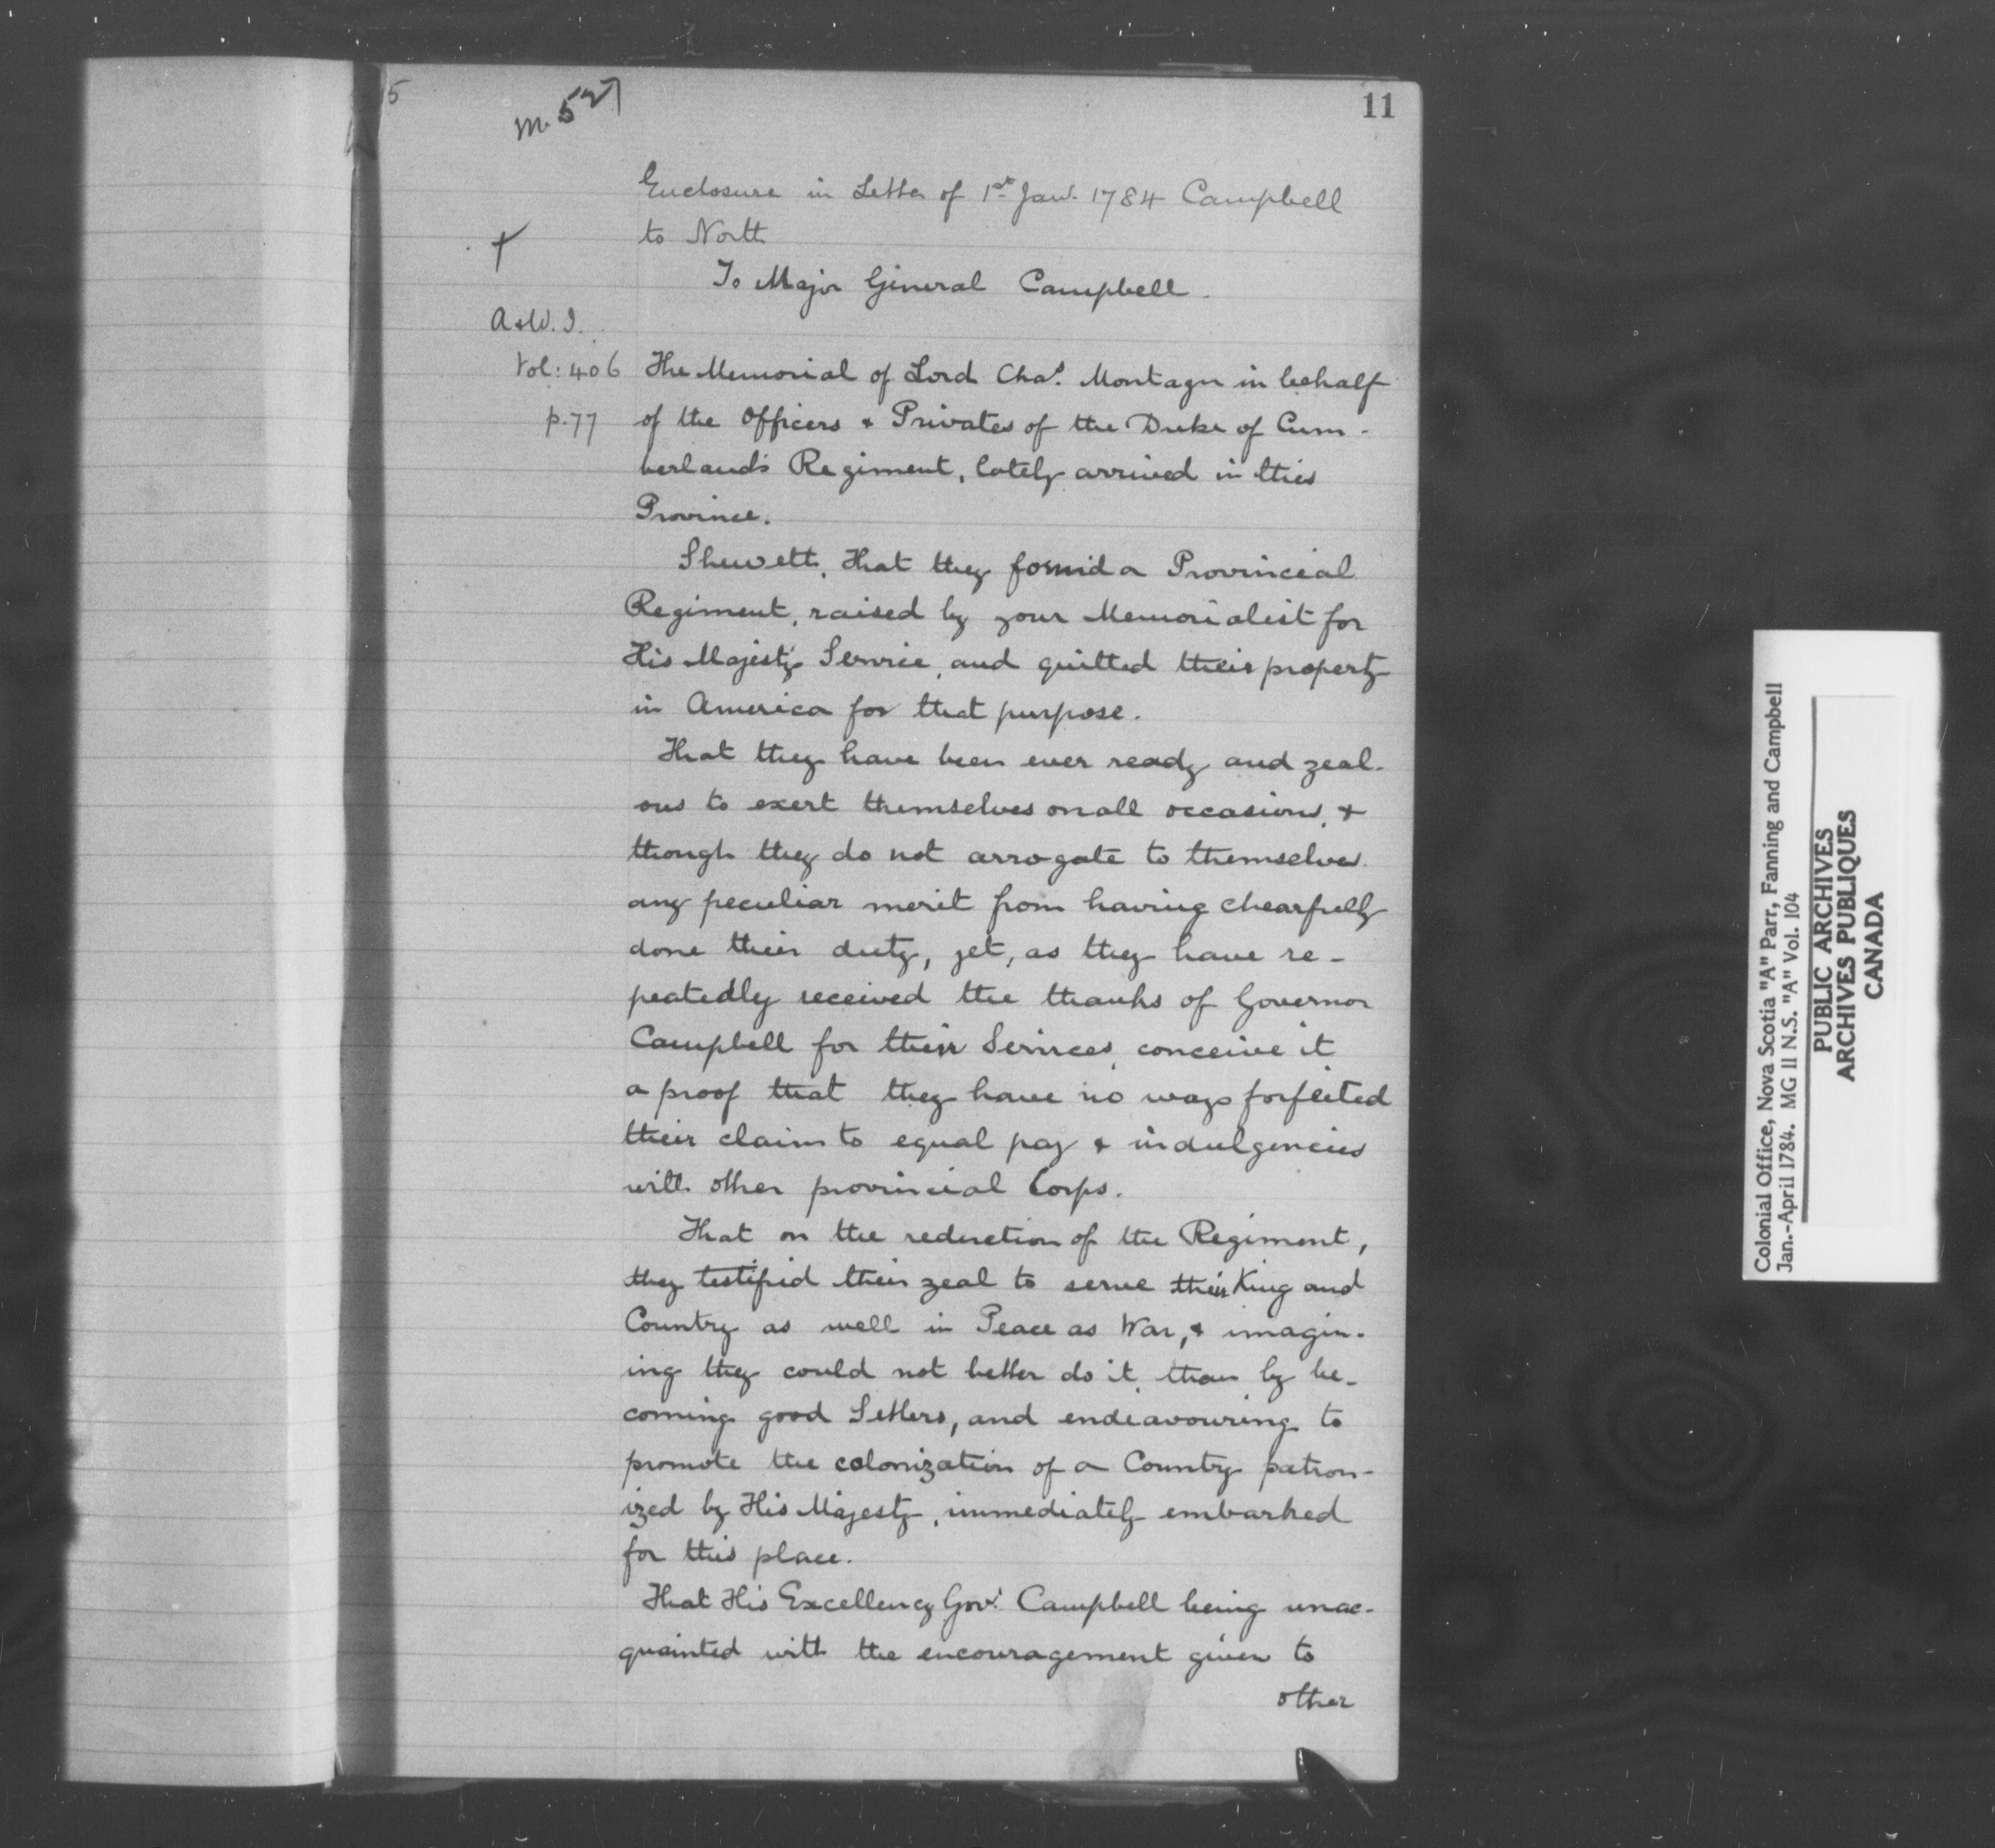 5
M. 527
11
Enclosure in Letter of 1st Jany. 1784 Campbell
to North
To Major General Campbell.
A & W. I.
Vol: 406
p. 77
The Memorial of Lord Chas. Montagu in behalf
of the Officers & Privates of the Duke of Cum-
berland's Regiment, lately arrived in this
Province.
Sheweth, That they formed a Provincial
Regiment, raised by your Memorialist for
His Majesty's Service, and quitted their property
in America for that purpose.
That they have been ever ready and zeal-
ous to exert themselves on all occasions, &
though they do not arrogate to themselves
any peculiar merit from having chearfully
done their duty, yet, as they have re-
peatedly received the thanks of Governor
Campbell for their Services, conceive it
a proof that they have no ways forfeited
their claim to equal pay & indulgencies
with other provincial Corps.
That on the reduction of the Regiment,
they testified their zeal to serve their King and
Country as well in Peace as War, & imagin-
ing they could not better do it, than by be-
coming good Settlers, and endeavouring to
promote the colonization of a Country patron-
ized by His Majesty, immediately embarked
for this place.
That His Excellency Govr. Campbell being unac-
quainted with the encouragement given to
other
Colonial Office, Nova Scotia "A" Parr, Fanning and Campbell
Jan.-April 1784. MG 11 N.S. "A" Vol. 104
PUBLIC ARCHIVES
ARCHIVES PUBLIQUES
CANADA